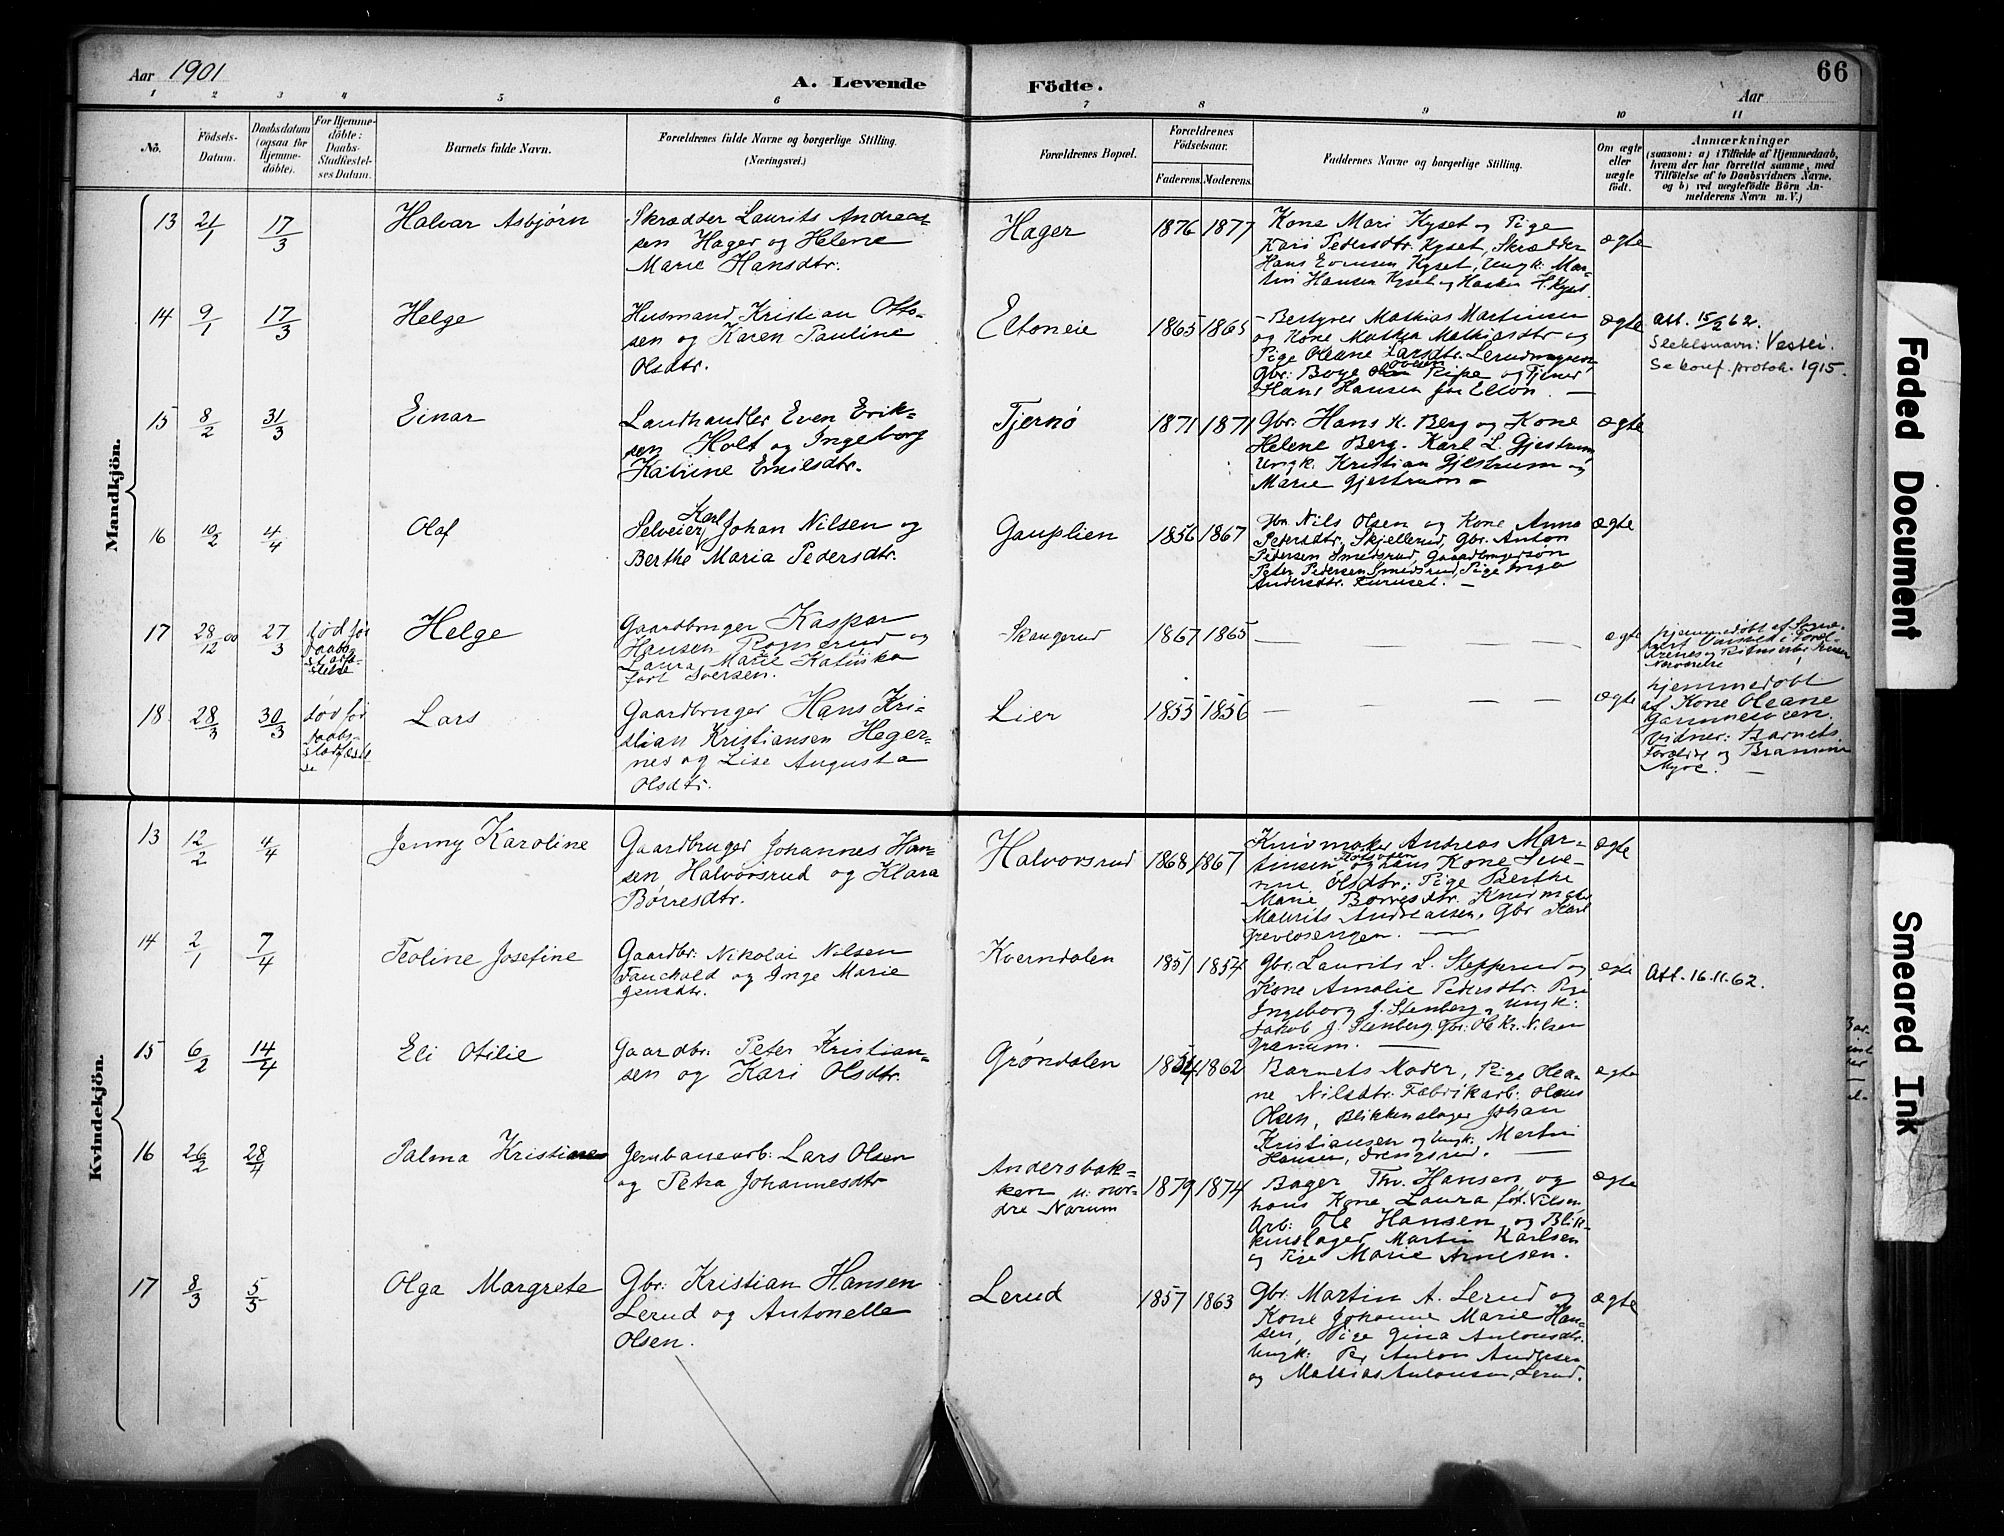 Aar 1901
A. Levende Födte.
Aar
66
1 2 3 4 5 6 7 8 9 10 11
No.
Födsels-Datum.
Daabsdatum (ogsaa for Hjemme-döbte).
For Hjemme-döbte: Daabs-Stadfæstel-ses Datum.
Barnets fulde Navn.
Forældrenes fulde Navne og borgerlige Stilling.
(Næringsvei.)
Forældrenes Bopæl.
Forældrenes Födselsaar.
Faderens. Moderens.
Faddernes Navne og borgerlige Stilling.
Om ægte eller uægte födt.
Anmærkninger
(saasom: a) i Tilfælde af Hjemmedaab,
hvem der har forrettet samme, med
Tilföielse af to Daabsvidners Navne.
og b) ved uægtefödte Börn An-
melderens Navn m. V.)
Mandkjön.
13 21/1 17/3 Halvar Asbjørn
Skrædder Laurits Andreas-
sen Hager og Helene
Marie Hansdtr.
Hager 1876 1877
Kone Mari Kyset og Pige
Kari Pedersdtr. Kyset, Skrædder
Hans Evensen Kyset, Ungk. Mar-
tin Hansen Kyset og H. Kyset
ægte
14 9/1 17/3 Helge
Husmand Kristian Otto-
sen og Karen Pauline
Olsdtr.
Eltoneie 1865 1865
Bestyrer Mathias Martinsen
og Kone Mathea Mathiasdtr og
Pige Oleane Larsdtr.
Gbr: Boye Ripe og Tjener
Hans Hansen fra Elton.
ægte
Att. 15/2 62.
Slektsnavn: Vestei.
Se konf. protok. 1915.
15 8/2 31/3 Einar
Landhandler Even Erik-
sen Holt og Ingeborg
Katrine Emilsdtr.
Tjernø 1871 1871
Gbr. Hans K. Berg og Kone
Helene Berg. Karl L. Gjestrum
Ungk. Kristian Gjestrum og
Marie Gjestrum
ægte
16 10/2 4/4 Olaf
Selveier Karl Johan Nilsen og
Berthe Maria Pedersdtr.
Gauplien 1856 1867
Gbr. Nils Olsen og Kone Anna
Petersdtr. Skjellerud, Gbr. Anton
Pedersen Smedsrud, Gaardbrugersøn
Peter Pedersen Smedsrud, Pige Inga
Andersdtr. Furuset.
ægte
17 28/12 00 27/3 død før Daabs-stadfæ-stelse Helge
Gaardbruger Kaspar
Hansen Rognerud og
Laura Marie Katinka
født Iversen.
Skaugerud 1867 1865
ægte
hjemmedøbt af Sogne-
18 28/3 30/3 død før Daabs-stadfæstel-se Lars
Gaardbruger Hans Kri-
stian Kristiansen Heger-
nes og Lise Augusta
Olsdtr.
Lier 1855 1856
ægte
hjemmedøbt
af Kone Oleane
Gammesveen.
Vidner: Barnets
Forældre og
Myre.
Kvindekjön.
13 12/2 4/4 Jenny Karoline
Gaardbruger Johannes Han-
sen Halvorsrud og Klara
Børresdtr.
Halvorsrud 1868 1867
Knivmaker Andreas Mar-
tinsen og hans Kone Seve-
rine Olsdtr. Pige Berthe
Marie Børresdtr. Knivmaker
Maurits Andreassen, Gbr. Karl
Grevlosengen.
ægte
14 2/1 7/4 Teoline Josefine
Gaardbr: Nikolai Nilsen
Fauchald og Inge Marie
Jensdtr.
Kverndalen 1851 1854
Gbr. Laurits L. Stepperud og
Kone Amalie Pedersdtr. Pige
Ingeborg J. Stenberg, Ungk:
Jakob J. Stenberg, Gbr: Ole Kr. Nilsen
Grænum.
ægte
Att. 16.11.62.
15 6/2 14/4 Eli Otilie
Gaardbr: Peter Kristian-
sen og Kari Olsdtr.
Grøndalen 1854 1862
Barnets Moder, Pige Olea-
ne Nilsdtr. Fabrikarb: Olaus
Olsen, Blikkenslager Johan
Kristiansen og Ungk. Martin
Hansen,
ægte
16 26/2 28/4 Palma Kristiane
Jernbanearb: Lars Olsen
og Petra Johannesdtr
Andersbak-
ken u. nor-
dre Narum
1879 1874
Bager Thv. Hansen og
hans Kone Laura fød. Nilsen
Arb: Ole Hansen og Blik-
kenslager Martin Karlsen
og Pige Marie Arnesen.
ægte
17 8/3 5/5 Olga Margrete
Gbr: Kristian Hansen
Lerud og Antonette
Olsen.
Lerud 1857 1863
Gbr. Martin A. Lerud og
Kone Johanne Marie Han-
sen, Pige Gina Antonsdtr.
Ungk: Per Anton Andersen
og Mathias Antonsen, Lerud.
ægte
Faded Document
Smeared Ink